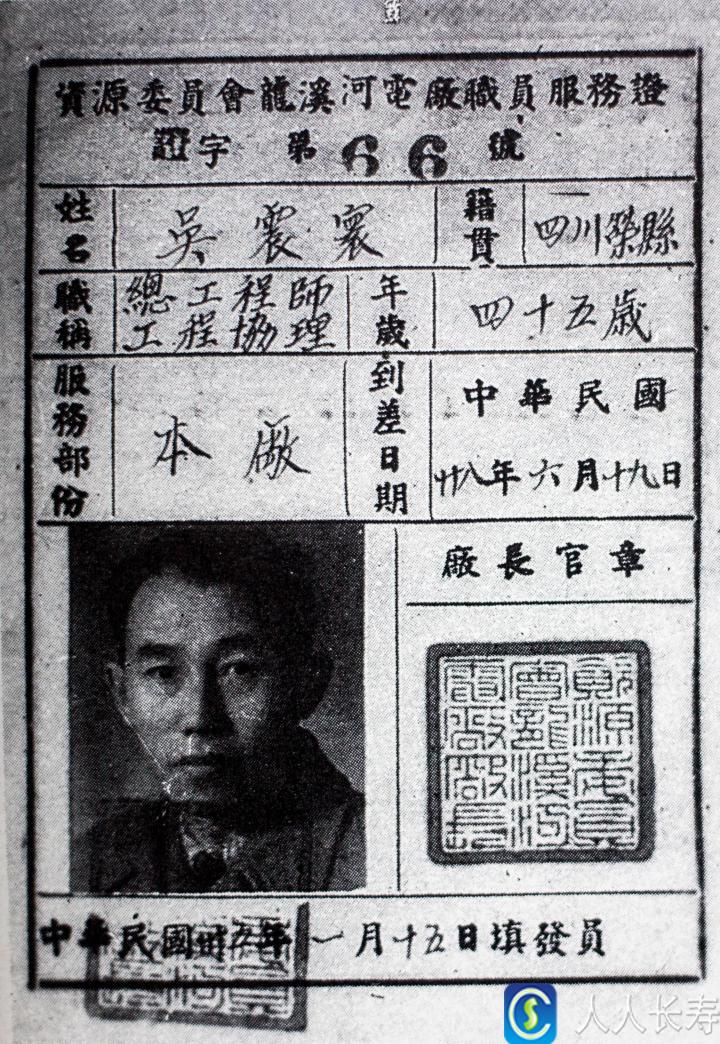 資源委員會龍溪河電廠職員服務證
證字第66號
姓名 吳震寰 籍貫 四川榮縣
職稱 總工程師 工程協理 年歲 四十五歲
服務部份 本廠 到差日期 中華民國廿八年六月十九日
廠長官章
資源委員會龍溪河電廠廠長
中華民國卅五年一月十五日填發員
人人长寿